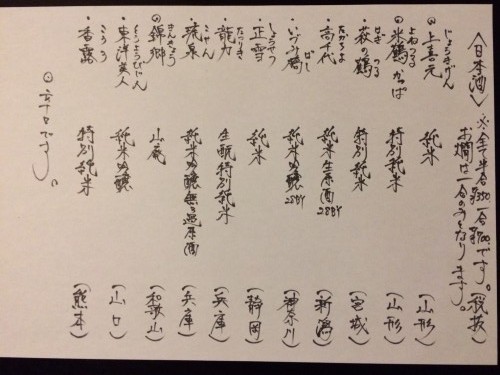 〈日本酒〉 ※全て半合¥350 一合¥700です。(税抜)
お燗は一合のみとなります。
◎上喜元 じょうきげん 純米 (山形)
◎米鶴 かっぱ よねつる 特別純米 (山形)
・萩の鶴 はぎ つる 特別純米 (宮城)
・高千代 たかちよ 純米生原酒28BY (新潟)
・いづみ橋 ばし 純米吟醸28BY (神奈川)
・正雪 しょうせつ 純米 (静岡)
・龍力 たつりき 生酛特別純米 (兵庫)
・琥泉 こせん 純米吟醸無ろ過原酒 (兵庫)
◎錦郷 きんきょう 山庵 (和歌山)
・東洋美人 とうようびじん 純米吟醸 (山口)
・香露 こうろ 特別純米 (熊本)
◎辛口です。